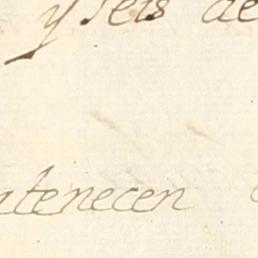 y seis de
atenecen